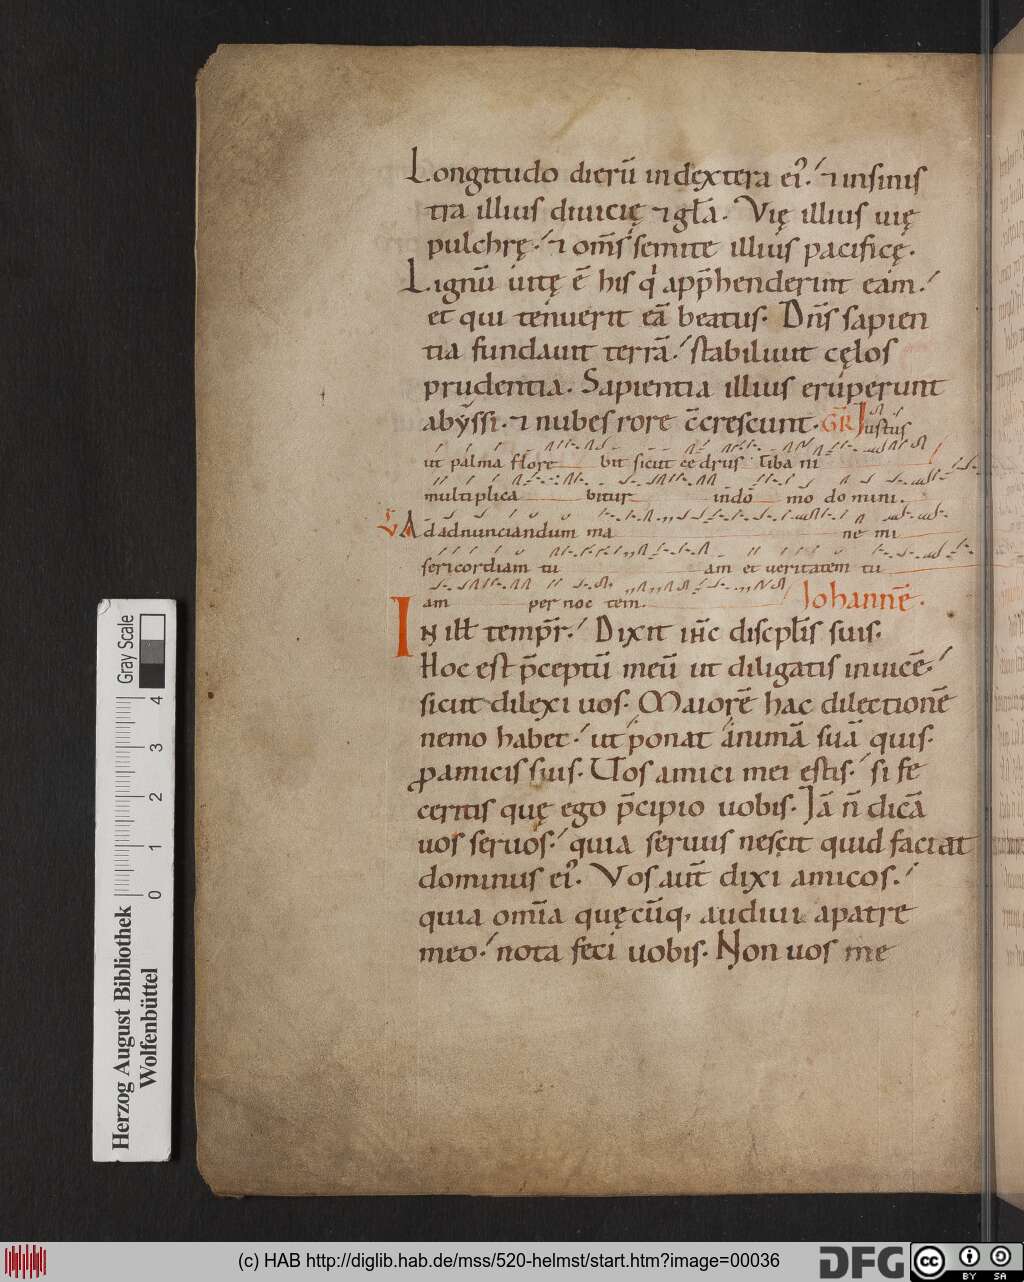 Longitudo dierū in dextera ei᾿. ⁊ in sinis
tra illius diuicię ⁊ gl̄a. Vię illius uię
pulchrę. ⁊ om̄s semite illius pacificę.
Lignū uitę ē his q' app̄henderint eam.
et qui tenuerit eā beatus. Dn̄s sapien
tia fundauit terrā. stabiliuit cęlos
prudentia. Sapientia illius eruperunt
abyssi. ⁊ nubes rore c̄crescunt. GR̄ Iustus
ut palma flore bit sicut ce drus liba ni
multiplica bitur in domo do mini.
V Ad adnunciandum ma ne mi
sericordiam tu am et ueritatem tu
am per noc tem. Iohannē.
In ill̄ temp̄r. Dixit ih̄c discpl̄is suis.
Hoc est p̄ceptū meū ut diligatis inuicē.
sicut dilexi uos. Maiorē hac dilectionē
nemo habet. ut ponat animā suā quis.
ꝓ amicis suis. Vos amici mei estis. si fe
ceritis quę ego p̄cipio uobis. Iā n̄ dicā
uos seruos. quia seruus nescit quid faciat
dominus ei᾿. Vos aut̄ dixi amicos.
quia om̄ia quęcūq, audiui a patre
meo. nota feci uobis. Non uos me
Gray Scale
4
3
2
1
0
Herzog August Bibliothek
Wolfenbüttel
(c) HAB http://diglib.hab.de/mss/520-helmst/start.htm?image=00036
DFG
cc BY SA